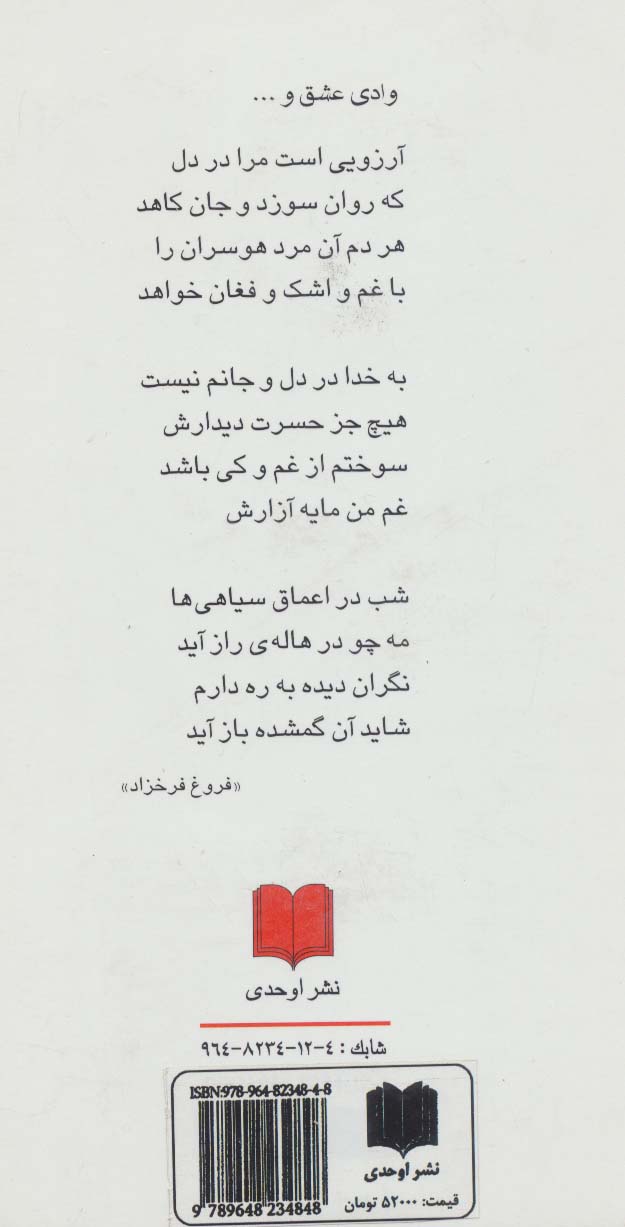 وادی عشق و ...
آرزویی است مرا در دل
که روان سوزد و جان کاهد
هر دم آن مرد هوسران را
با غم و اشک و فغان خواهد
به خدا در دل و جانم نیست
هیچ جز حسرت دیدارش
سوختم از غم و کی باشد
غم من مایه آزارش
شب در اعماق سیاهی‌ها
مه چو در هاله‌ی راز آید
نگران دیده به ره دارم
شاید آن گمشده باز آید
«فروغ فرخزاد»
نشر اوحدی
شابك : ٤-١٢-٨٢٣٤-٩٦٤
ISBN:978-964-82348-4-8
9 789648 234848
نشر اوحدی
قیمت: ۵۲۰۰۰ تومان